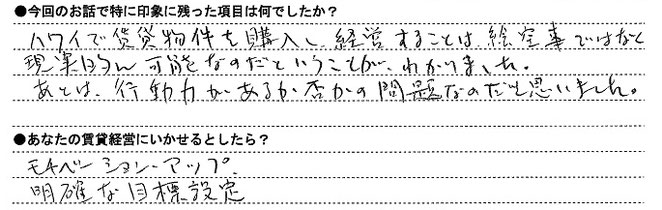 ●今回のお話で特に印象に残った項目は何でしたか？
ハワイで賃貸物件を購入し経営することは、絵空事ではなく
現実的に可能なのだということが、わかりました。
あとは、行動力があるか否かの問題なのだと思いました。
●あなたの賃貸経営にいかせるとしたら？
モチベーション・アップ.
明確な目標設定